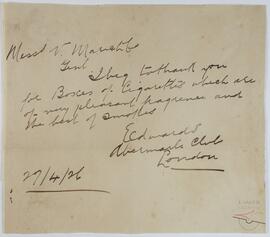 Messrs V. Maricich
Gents
I beg to thank you
for Boxes of Cigarettes which are
of very pleasant fragrance and
the best of smokes
Edwards
Abermarle Club
London
27/4/26